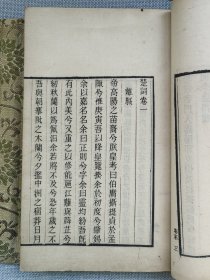 楚詞卷一
離騷
帝高陽之苗裔兮朕皇考曰伯庸攝提貞於孟
陬兮惟庚寅吾以降皇覽揆余於初度兮肇錫
余以嘉名名余曰正則兮字余曰靈均紛吾既
有此內美兮又重之以脩能扈江離與辟芷兮
紉秋蘭以為佩汩余若將不及兮恐年歲之不
吾與朝搴阰之木蘭兮夕攬中洲之宿莽日月